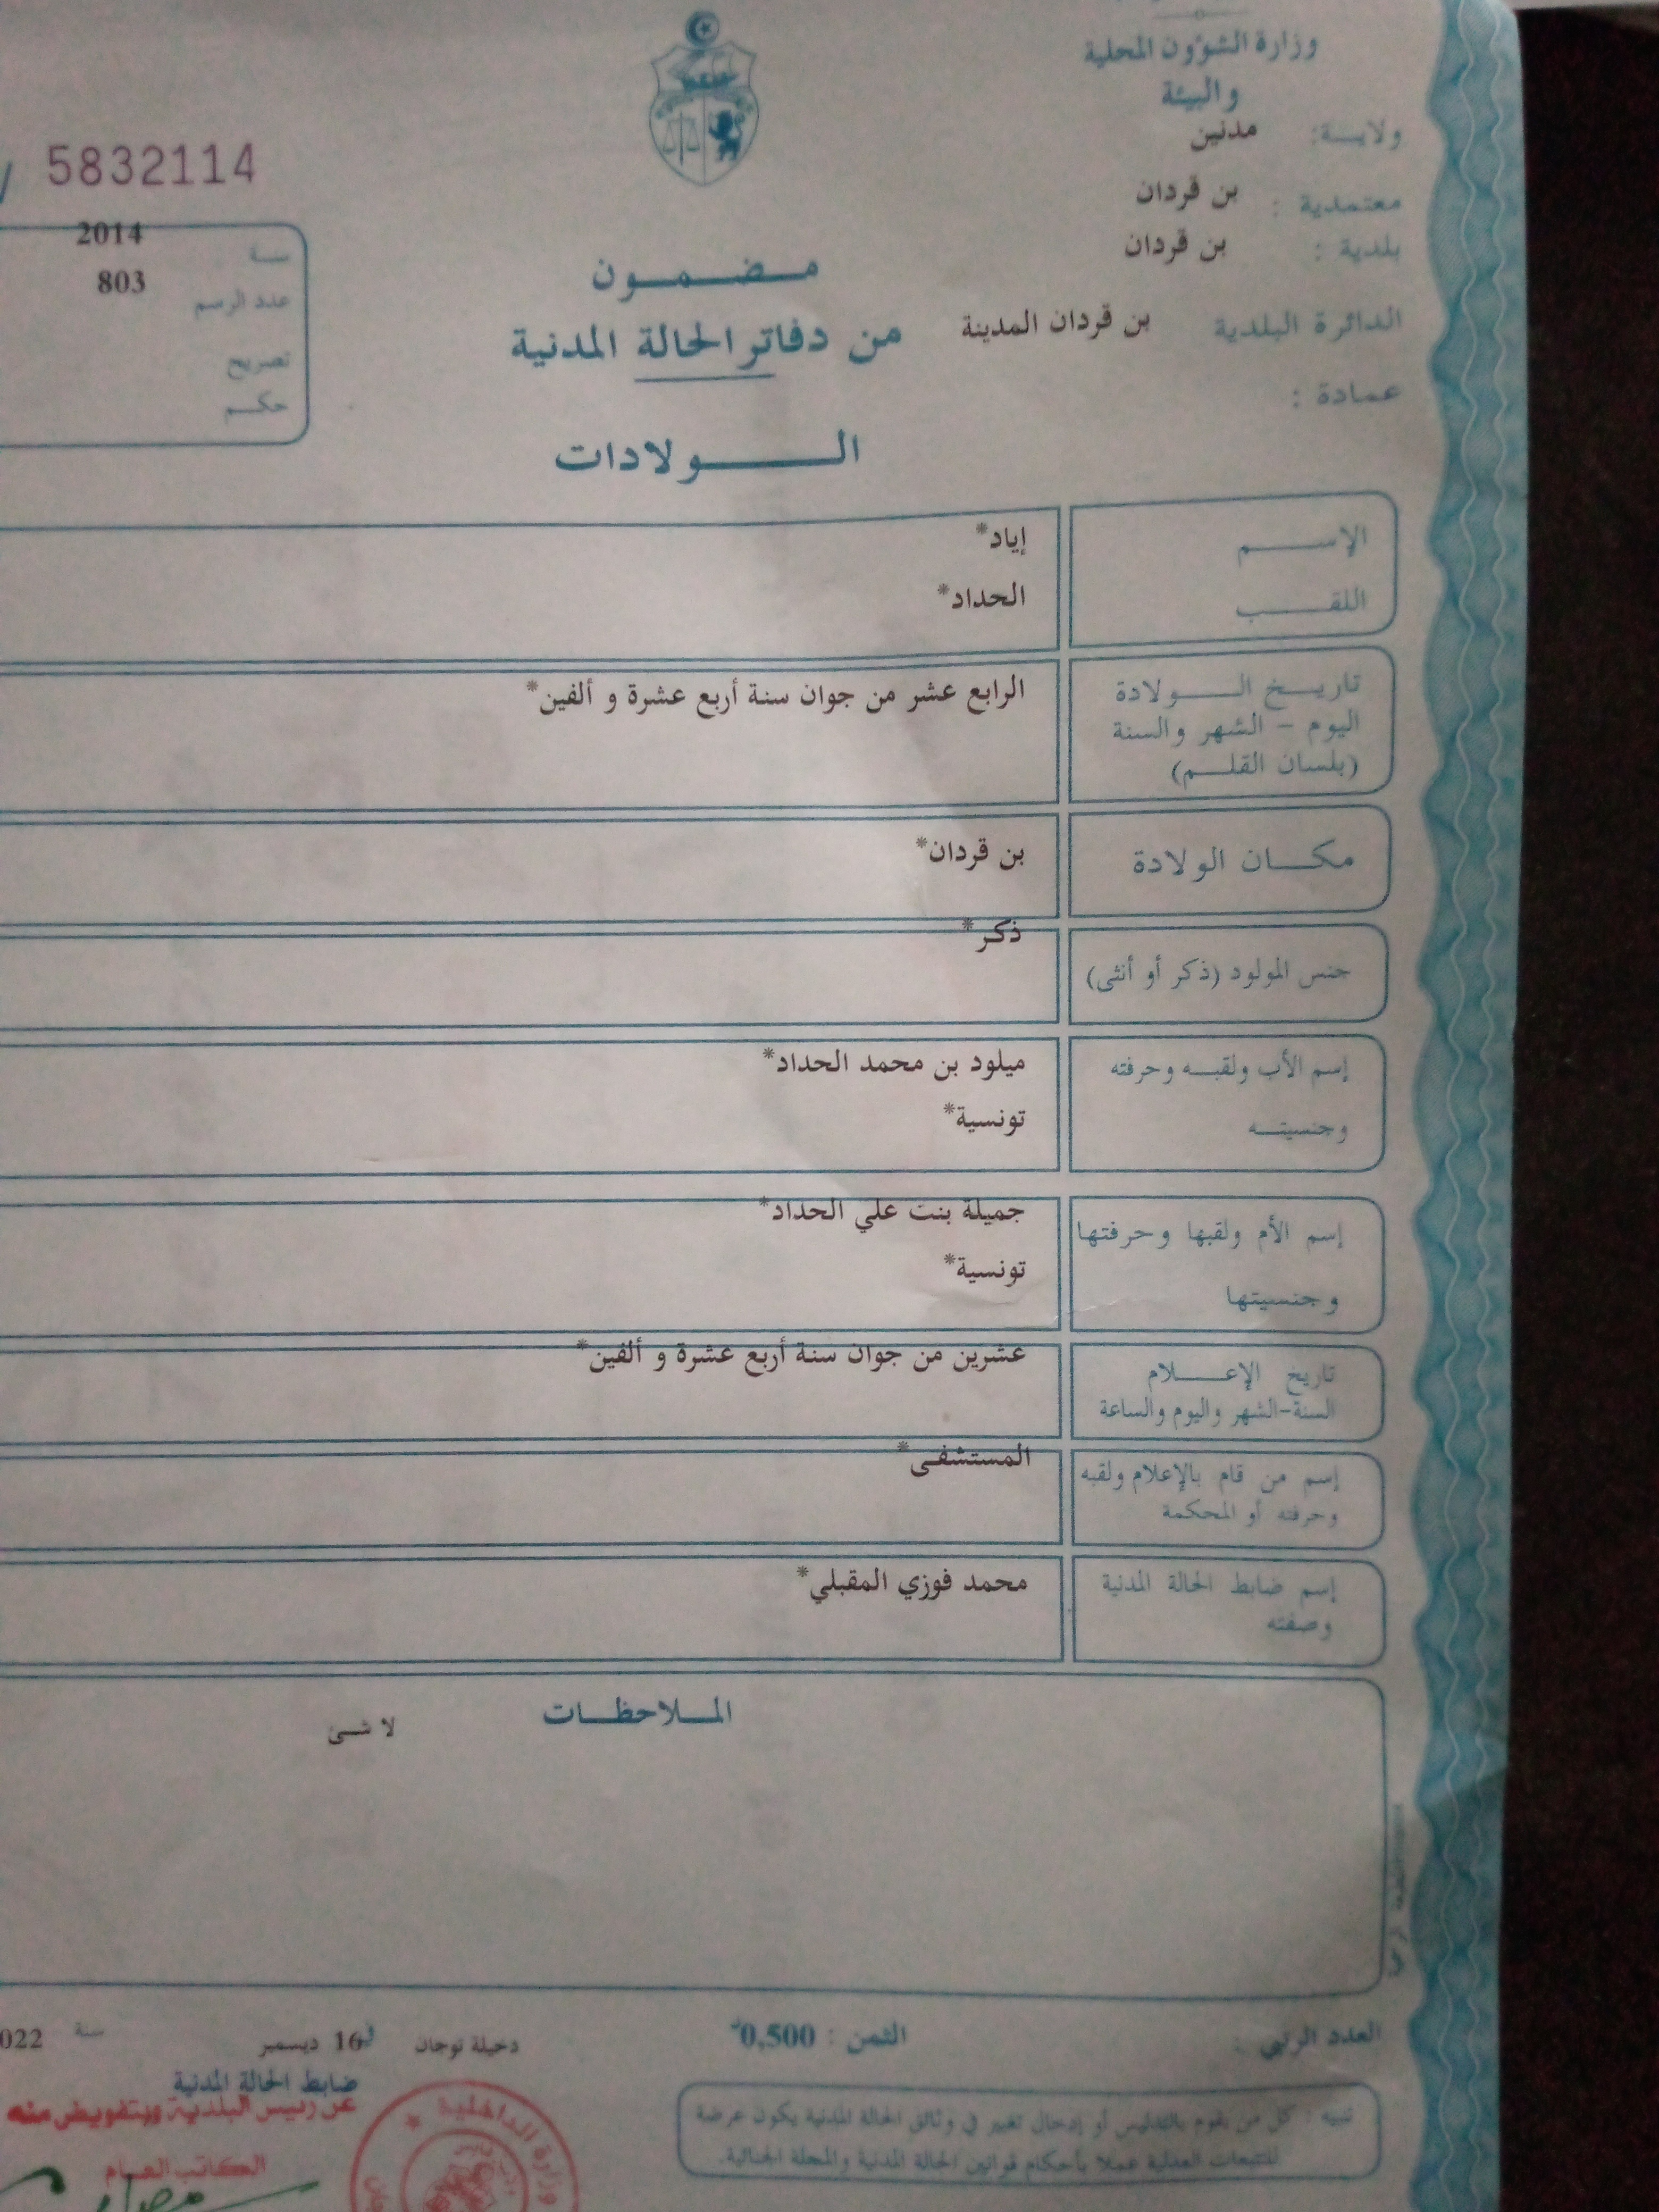 وزارة الشؤون المحلية
والبيئة
ولايـــة: مدنين
معتمدية : بن قردان
بلدية : بن قردان
الدائرة البلدية بن قردان المدينة
عمادة :
5832114
سنة 2014
عدد الرسم 803
تصريح
حكم
مضمون
من دفاتر الحالة المدنية
الولادات
الإسم إياد*
اللقب الحداد*
تاريخ الولادة الرابع عشر من جوان سنة أربع عشرة و ألفين*
اليوم - الشهر والسنة
(بلسان القلم)
مكان الولادة بن قردان*
جنس المولود (ذكر أو أنثى) ذكر*
إسم الأب ولقبه وحرفته ميلود بن محمد الحداد*
وجنسيته تونسية*
إسم الأم ولقبها وحرفتها جميلة بنت علي الحداد*
وجنسيتها تونسية*
تاريخ الإعلام عشرين من جوان سنة أربع عشرة و ألفين*
السنة-الشهر واليوم والساعة
إسم من قام بالإعلام ولقبه المستشفى*
وحرفته أو المحكمة
إسم ضابط الحالة المدنية محمد فوزي المقبلي*
وصفته
الملاحظات
لا شئ
العدد الرتبي :
الثمن : 0,500د
دخيلة توجان في 16 ديسمبر سنة 022
ضابط الحالة المدنية
عن رئيس البلدية وبتفويض منه
الكاتب العام
وزارة الداخلية
تنبيه : كل من يقوم بالتدليس أو إدخال تغيير في وثائق الحالة المدنية يكون عرضة
للتتبعات العدلية عملا بأحكام قوانين الحالة المدنية والمجلة الجنائية.